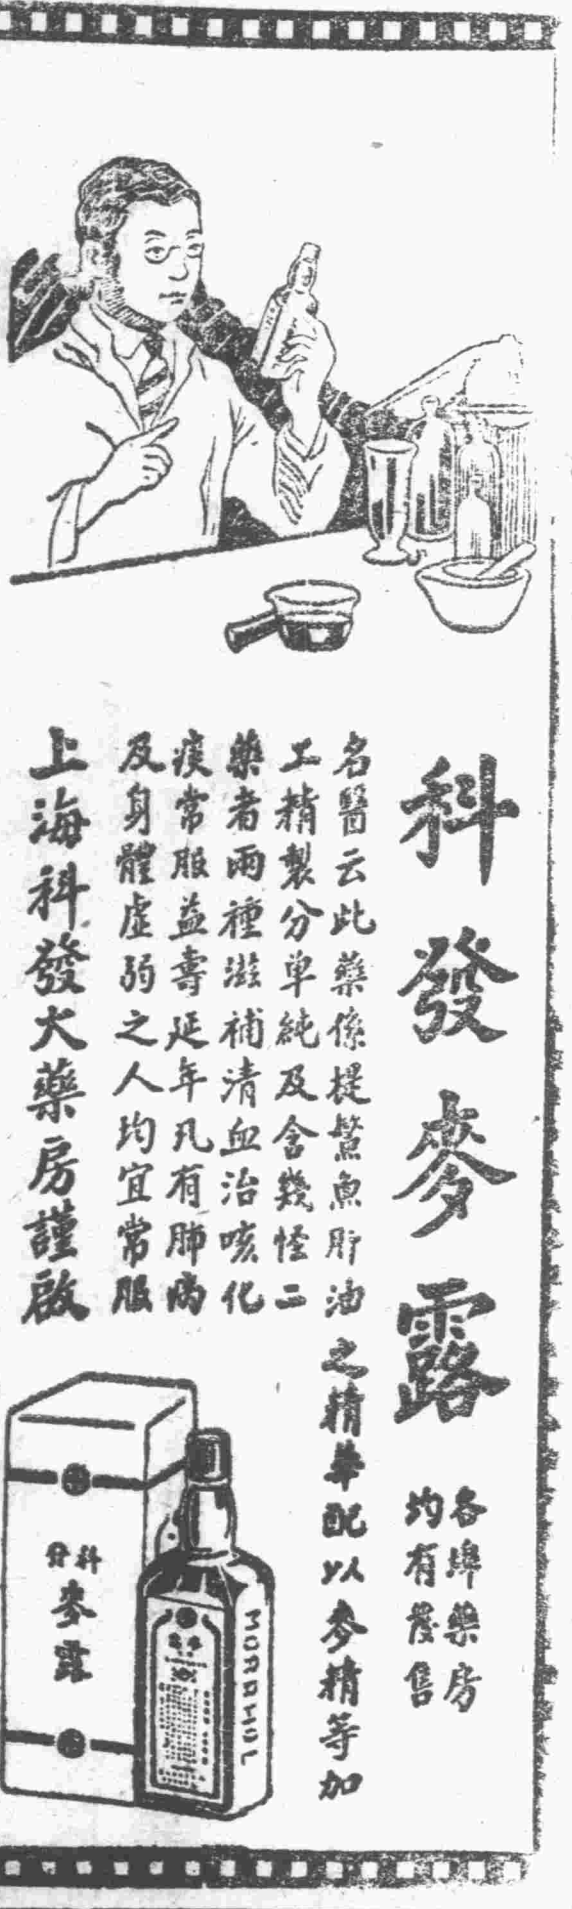 科發麥露
各埠藥房
均有發售
名醫云此藥係提鰵魚肝油之精華配以麥精等加
工精製分單純及含幾怪二
藥者兩種滋補清血治咳化
痰常服益壽延年凡有肺病
及身體虛弱之人均宜常服
上海科發大藥房謹啟
科發
麥露
MORRHUL